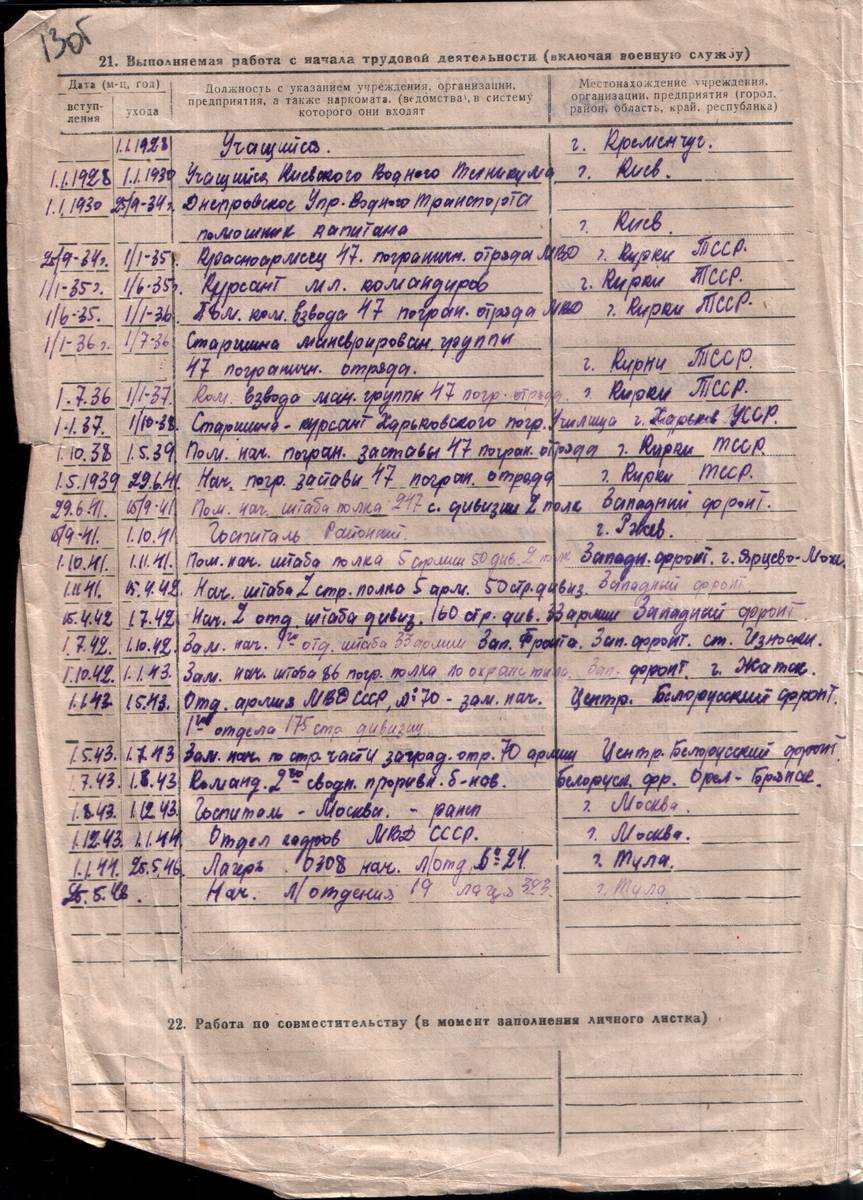 130б
21. Выполняемая работа с начала трудовой деятельности (включая военную службу)
Дата (м-ц, год)
вступ-
ления
ухода
Должность с указанием учреждения, организации,
предприятия, а также наркомата. (ведомства), в систему
которого они входят
Местонахождение учреждения,
организации, предприятия (город,
район, область, край, республика)
1.1.1928 Учащийся. г. Кременчуг.
1.1.1928 1.1.1930 Учащийся Киевского Водного Техникума г. Киев.
1.1.1930 25/9-34г. Днепровское Упр. Водного Транспорта
помошник капитана г. Киев
25/9-34г. 1/1-35г. Красноармеец 47. погранич. отряда МВД г. Кирки ТССР.
1/1-35г. 1/6-35г. Курсант мл. командиров г. Кирки ТССР.
1/6-35. 1/1-36. Пом. ком. взвода 47 погран. отряда МВД г. Кирки ТССР.
1/1-36г. 1/7-36 Старшина маневрирован. группы
47 погранич. отряда. г. Кирки ТССР.
1.7.36 1/1-37. Ком. взвода ман. группы 47 погр. отряда. г. Кирки ТССР.
1.1.37. 1/10-38 Старшина-курсант Харьковского погр. Училища г. Харьков УССР.
1.10.38 1.5.39 Пом. нач. погран. заставы 47 погран. отряда г. Кирки ТССР.
1.5.1939 29.6.41. Нач. погр. заставы 47 погран. отряда г. Кирки ТССР.
29.6.41. 15/9-41 Пом. нач. штаба полка 247 с. дивизии 2 полк Западный фронт.
15/9-41. 1.10.41 Госпиталь Районный. г. Ржев.
1.10.41. 1.11.41. Пом. нач. штаба полка 5 армии 50 див. 2 полк Западн. фронт. г. Ярцево-Мож.
1.11.41 15.4.42 Нач. штаба 2 стр. полка 5 арм. 50 стр. дивиз. Западный фронт.
15.4.42 1.7.42. Нач. 2 отд. штаба дивиз. 160 стр. див. 33 армии Западный фронт
1.7.42 1.10.42. Зам. нач. 1го отд. штаба 33 армии Зап. Фронта. Зап. фронт. ст. Износки.
1.10.42 1.1.43. Зам. нач. штаба 86 погр. полка по охране тыла. Зап. фронт. г. Жатск.
1.1.43 1.5.43. Отд. армия МВД СССР, № 70 - зам. нач. Центр. Белорусский фронт.
1го отдела 175 стр. дивизии
1.5.43. 1.7.43 Зам. нач. по стр. части заград. отр. 70 армии Центр. Белорусский фронт.
1.7.43. 1.8.43 Команд. 2го сводн. прорывн. б-нов. Белоруск. фр. Орел-Брянск.
1.8.43 1.12.43. Госпиталь - Москва. - ранен г. Москва.
1.12.43. 1.1.44. Отдел кадров МВД СССР. г. Москва.
1.1.44. 25.5.46. Лагерь 0308 нач. л/отд. № 24. г. Тула.
25.5.46. Нач. л/отдения 19 лагеря 323. г. Тула
22. Работа по совместительству (в момент заполнения личного листка)